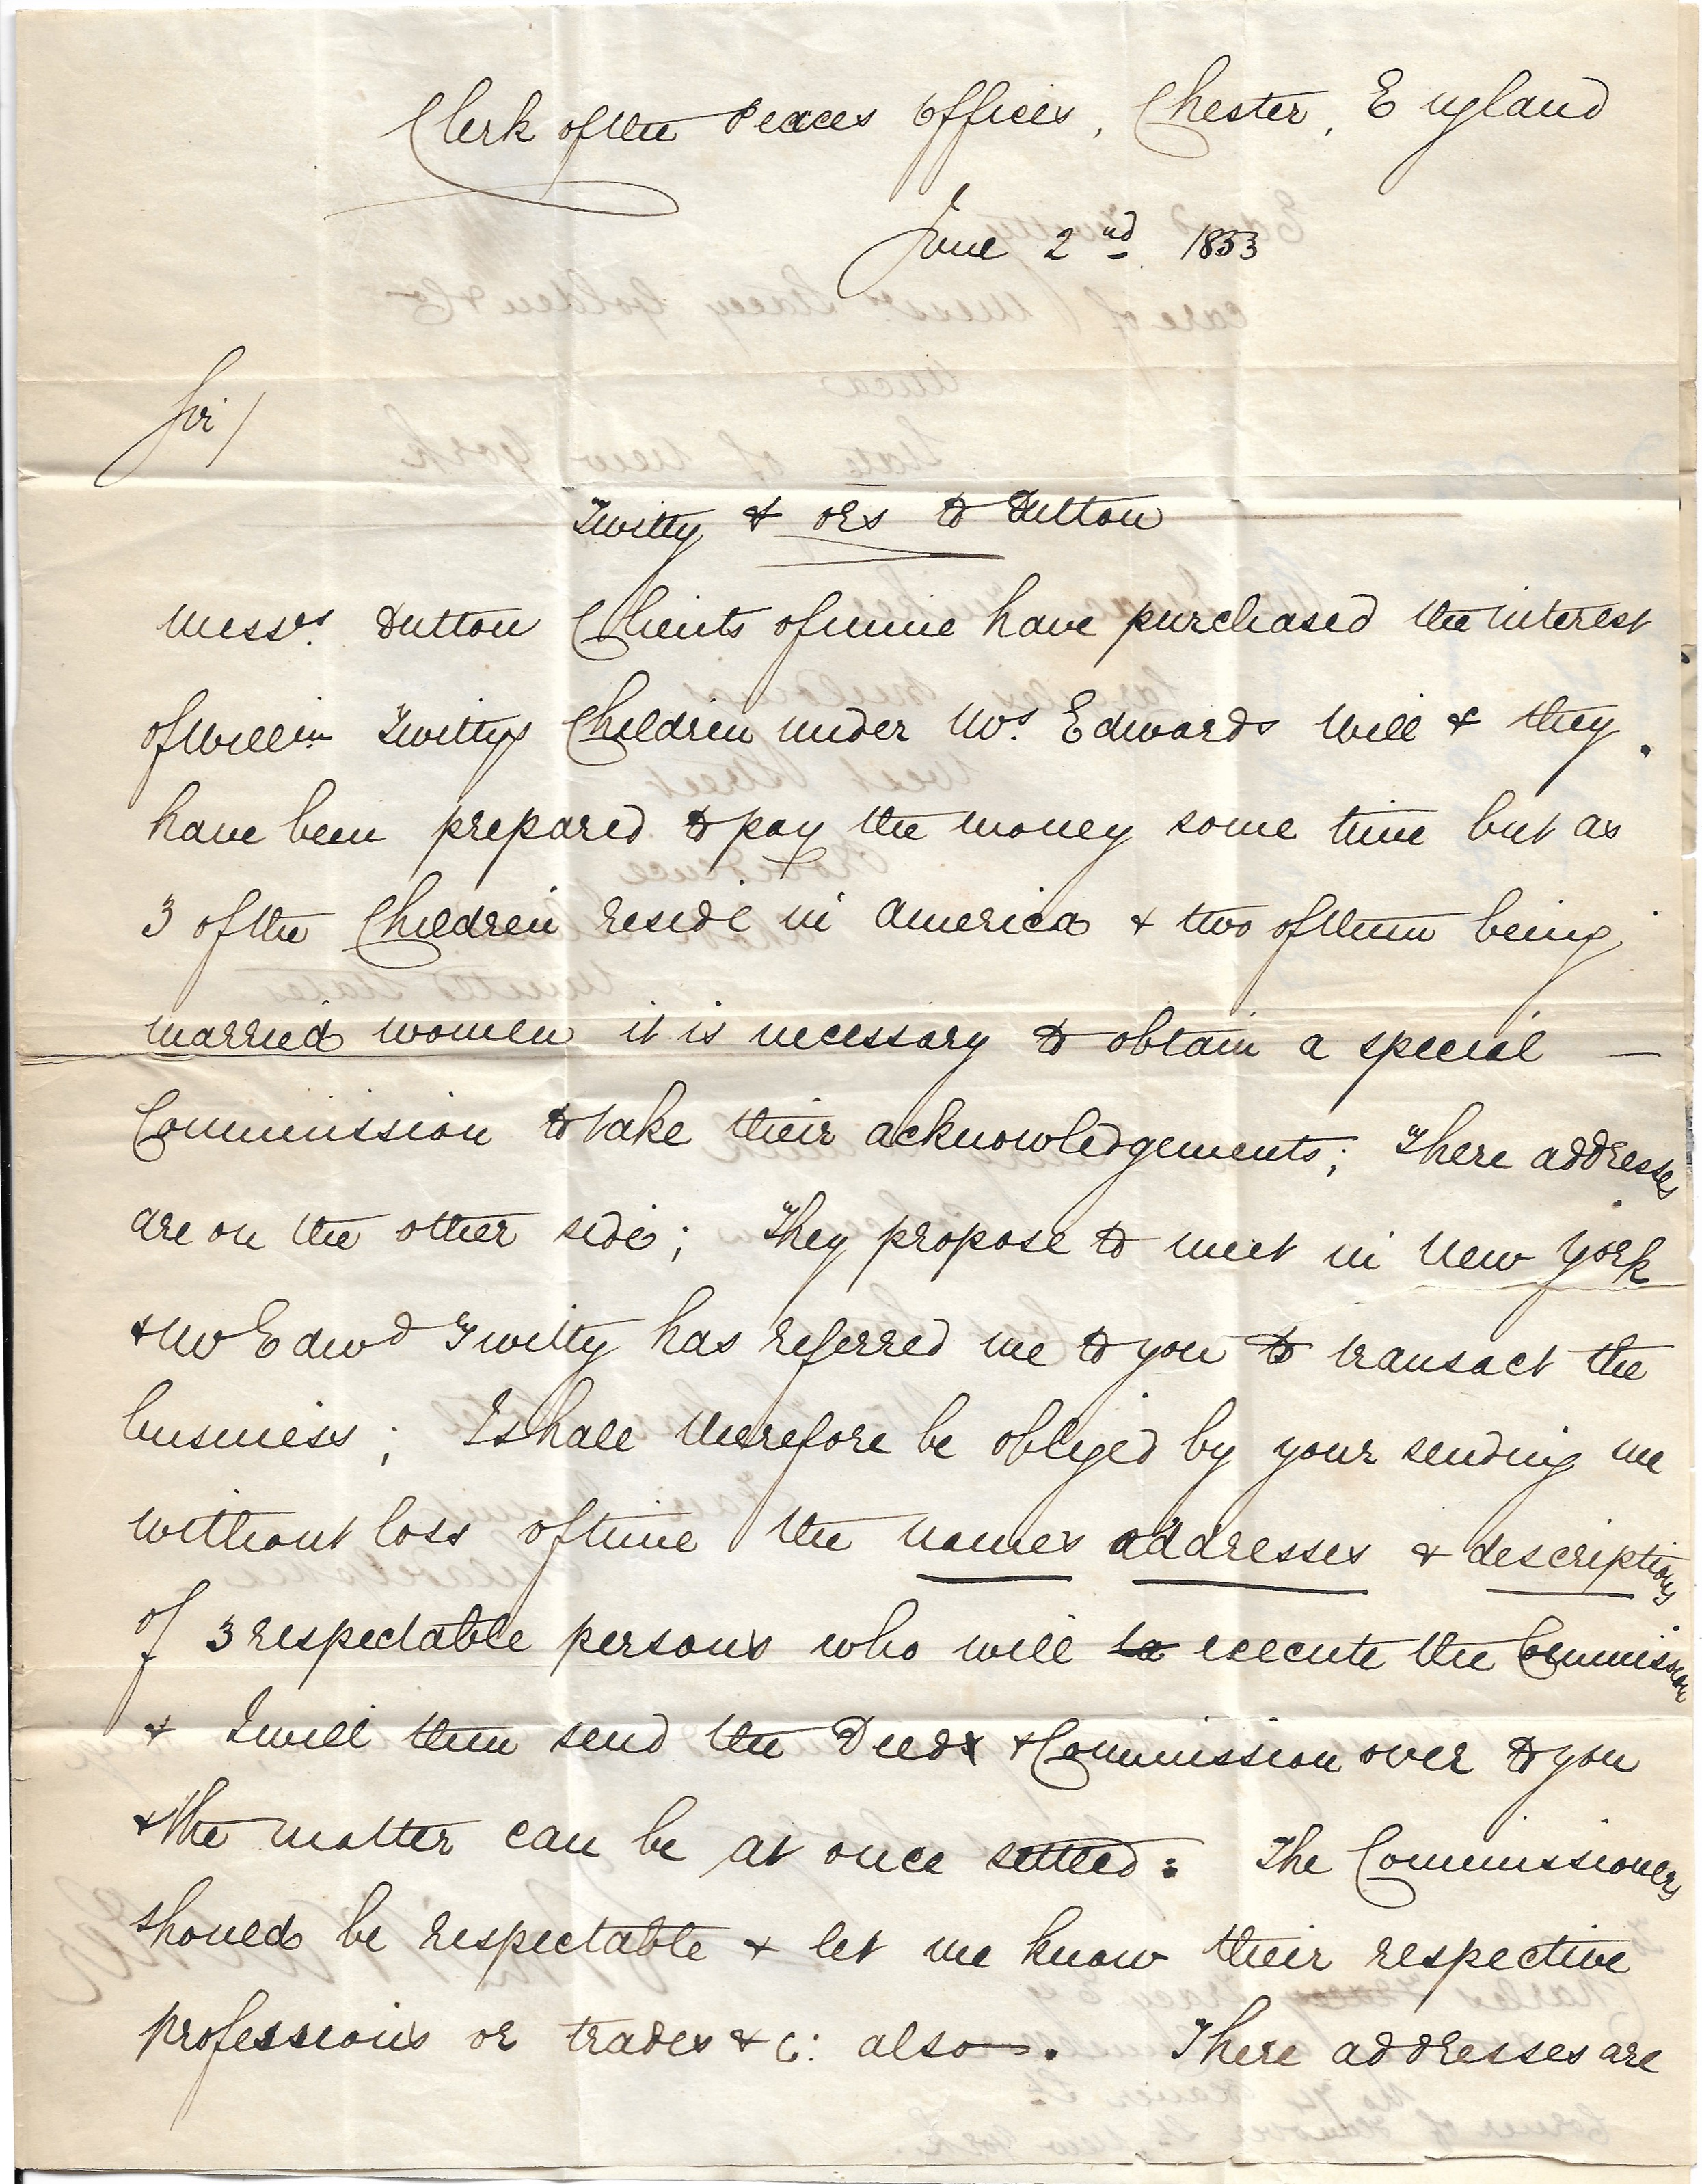 Clerk of the Peaces Offices, Chester, England
June 2nd. 1853
Sir/
Twitty & ors to Dutton
Messrs. Dutton Clients of mine have purchased the interest
of Willm Twittys Children under Mrs. Edwards Will & they
have been prepared to pay the money some time but as
3 of the Children reside in America & two of them being
married women it is necessary to obtain a special —
Commission to take their acknowledgements; There addresses
are on the other side; They propose to meet in New York
& Mr Edwd Twitty has referred me to you to transact the
business; I shall therefore be obliged by your sending me
without loss of time the names addresses & descriptions
of 3 respectable persons who will to execute the Commission
& I will then send the Deeds & Commission over to you
& the matter can be at once settled: The Commissioners
should be respectable & let me know their respective
professions or trades & c: also —. There addresses are